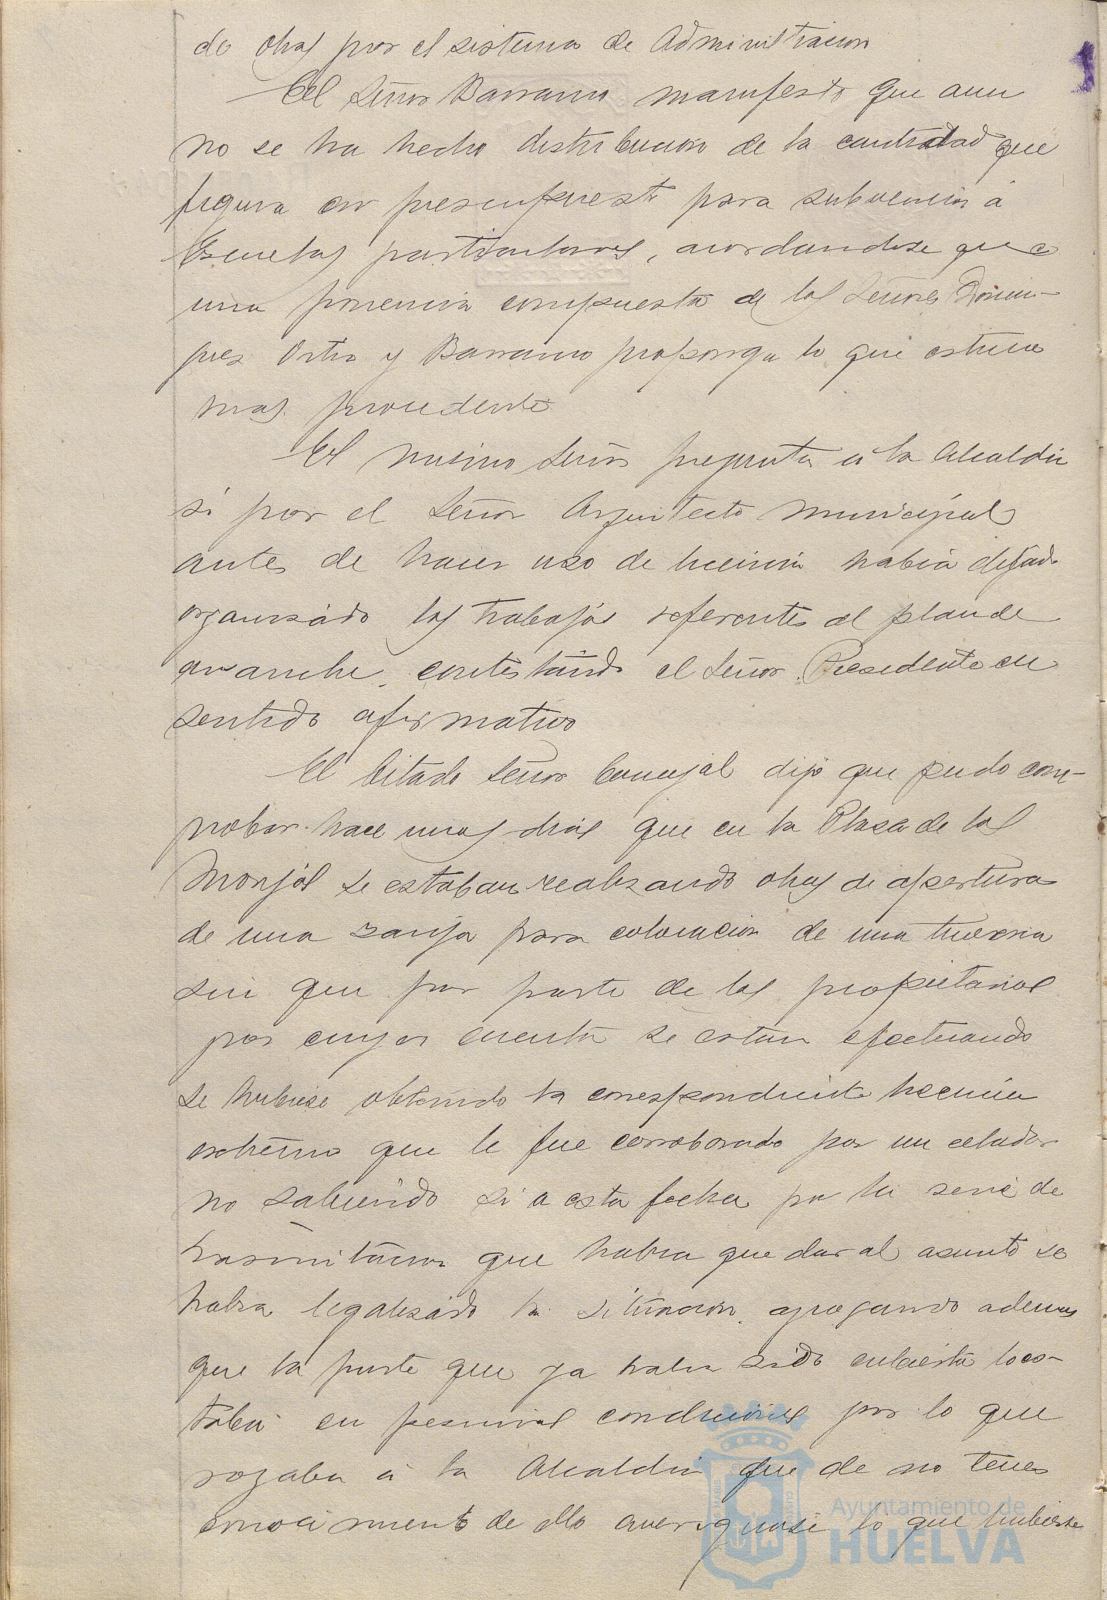 de obras por el sistema de Administracion
El Señor Barranco manifestó que aun
no se ha hecho distribucion de la cantidad que
figura en presupuesto para subvencion á
Escuelas particulares, acordandose que
una ponencia compuesta de los Señores Domin-
guez Ortiz y Barranco proponga lo que estime
mas procedente
El mismo Señor pregunta a la Alcaldia
si por el Señor Arquitecto Municipal
antes de hacer uso de licencia habia dejado
organizado los trabajos referentes al plan de
ensanche, contestando el Señor Presidente en
sentido afirmativo
El citado Señor Concejal dijo que pudo com-
probar hace unos dias que en la Plaza de las
Monjas se estaban realizando obras de apertura
de una zanja para colocacion de una tuberia
sin que por parte de los propietarios
por cuya cuenta se estan efectuando
se hubiese obtenido la correspondiente licencia
extremo que le fue corroborado por un celador
no sabiendo si a esta fecha por la serie de
tramitacion que habia que dar al asunto se
habia legalizado la situacion, agregando ademas
que la parte que ya habia sido cubierta lo es-
taba en pesimas condiciones por lo que
rogaba a la Alcaldia que de no tener
conocimiento de ello averiguase lo que hubiese
Ayuntamiento de
HUELVA